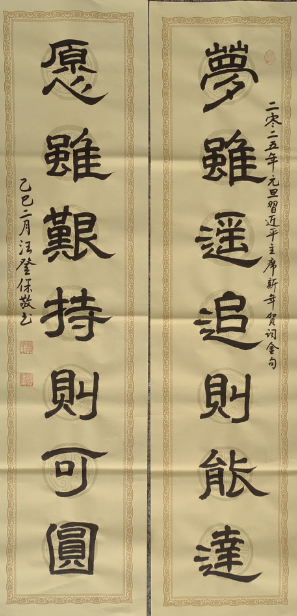 二零二五年元旦習近平主席新年賀词金句
夢雖遥追則能達
愿雖艱持則可圓
乙巳二月汪登保敬书